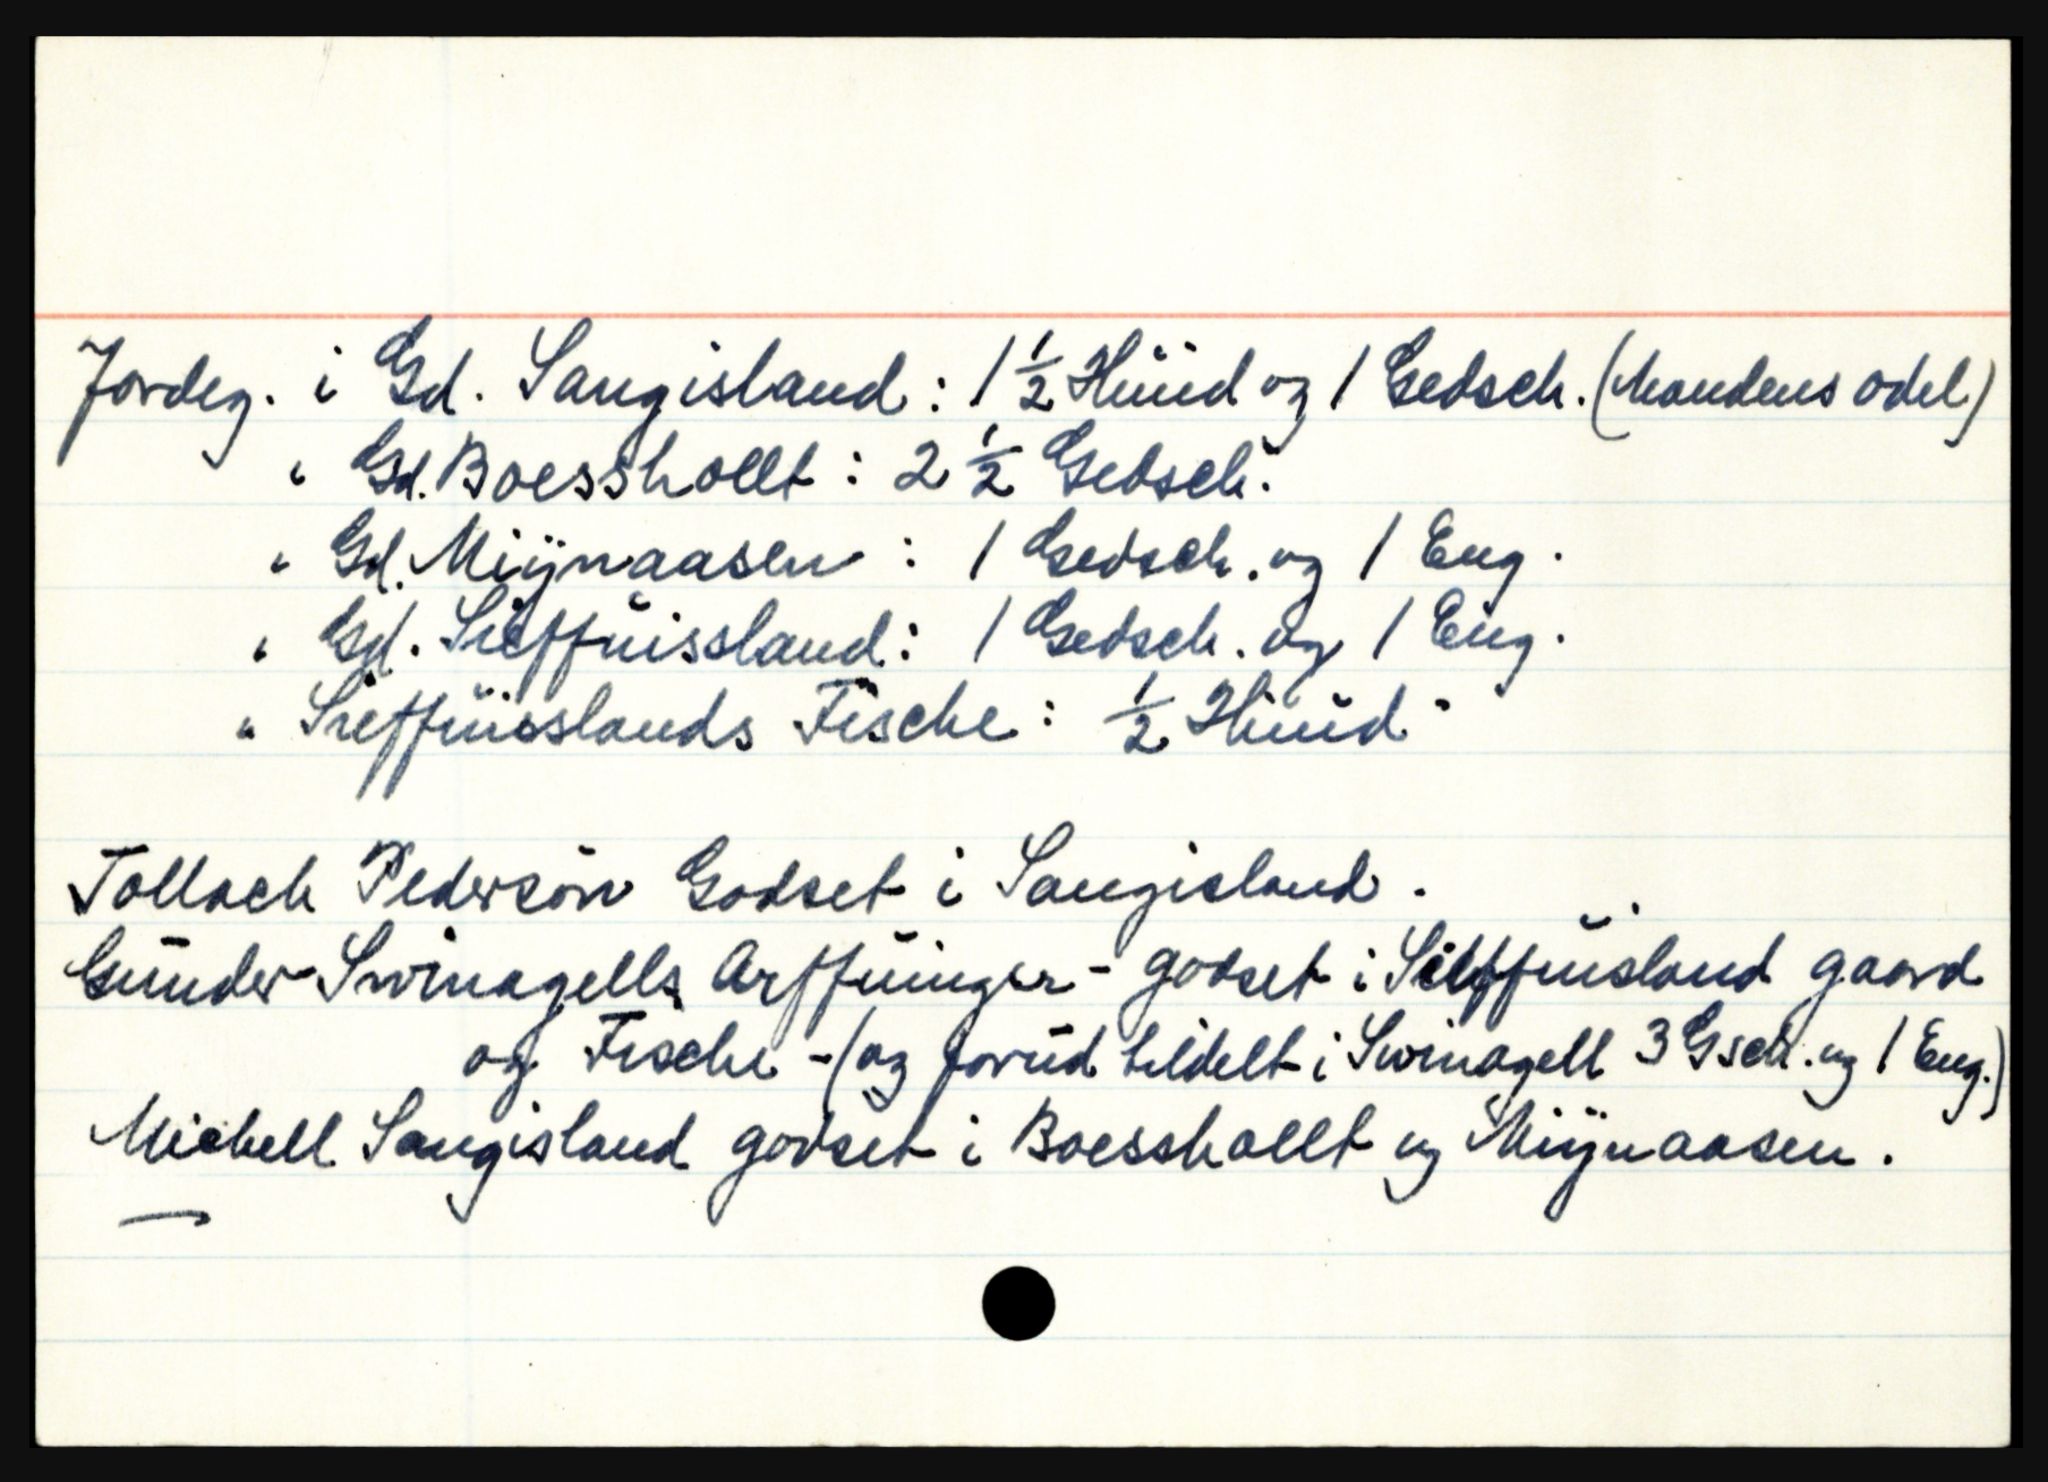 Jordeg. i Gd. Sangisland: 1½ Hüüd og 1 Gedsch. (Mandens odel)
" Gd. Boesshollt: 2½ Gedsch.
" Gd. Miÿnaasen: 1 Gedsch. og 1 Eng.
" Gd. Sieffüissland: 1 Gedsch. og 1 Eng.
" Sieffüisslands Fische: ½ Hüüd.
Tollach Pedersön Godset i Sangisland.
Günder Swinagells Arffüinger - godset i Sieffüisland gaard
og Fische - (og forüd tildelt i Swinagell 3 Gsch. og 1 Eng.)
Michell Sangisland godset i Boesshollt og Miÿnaasen.